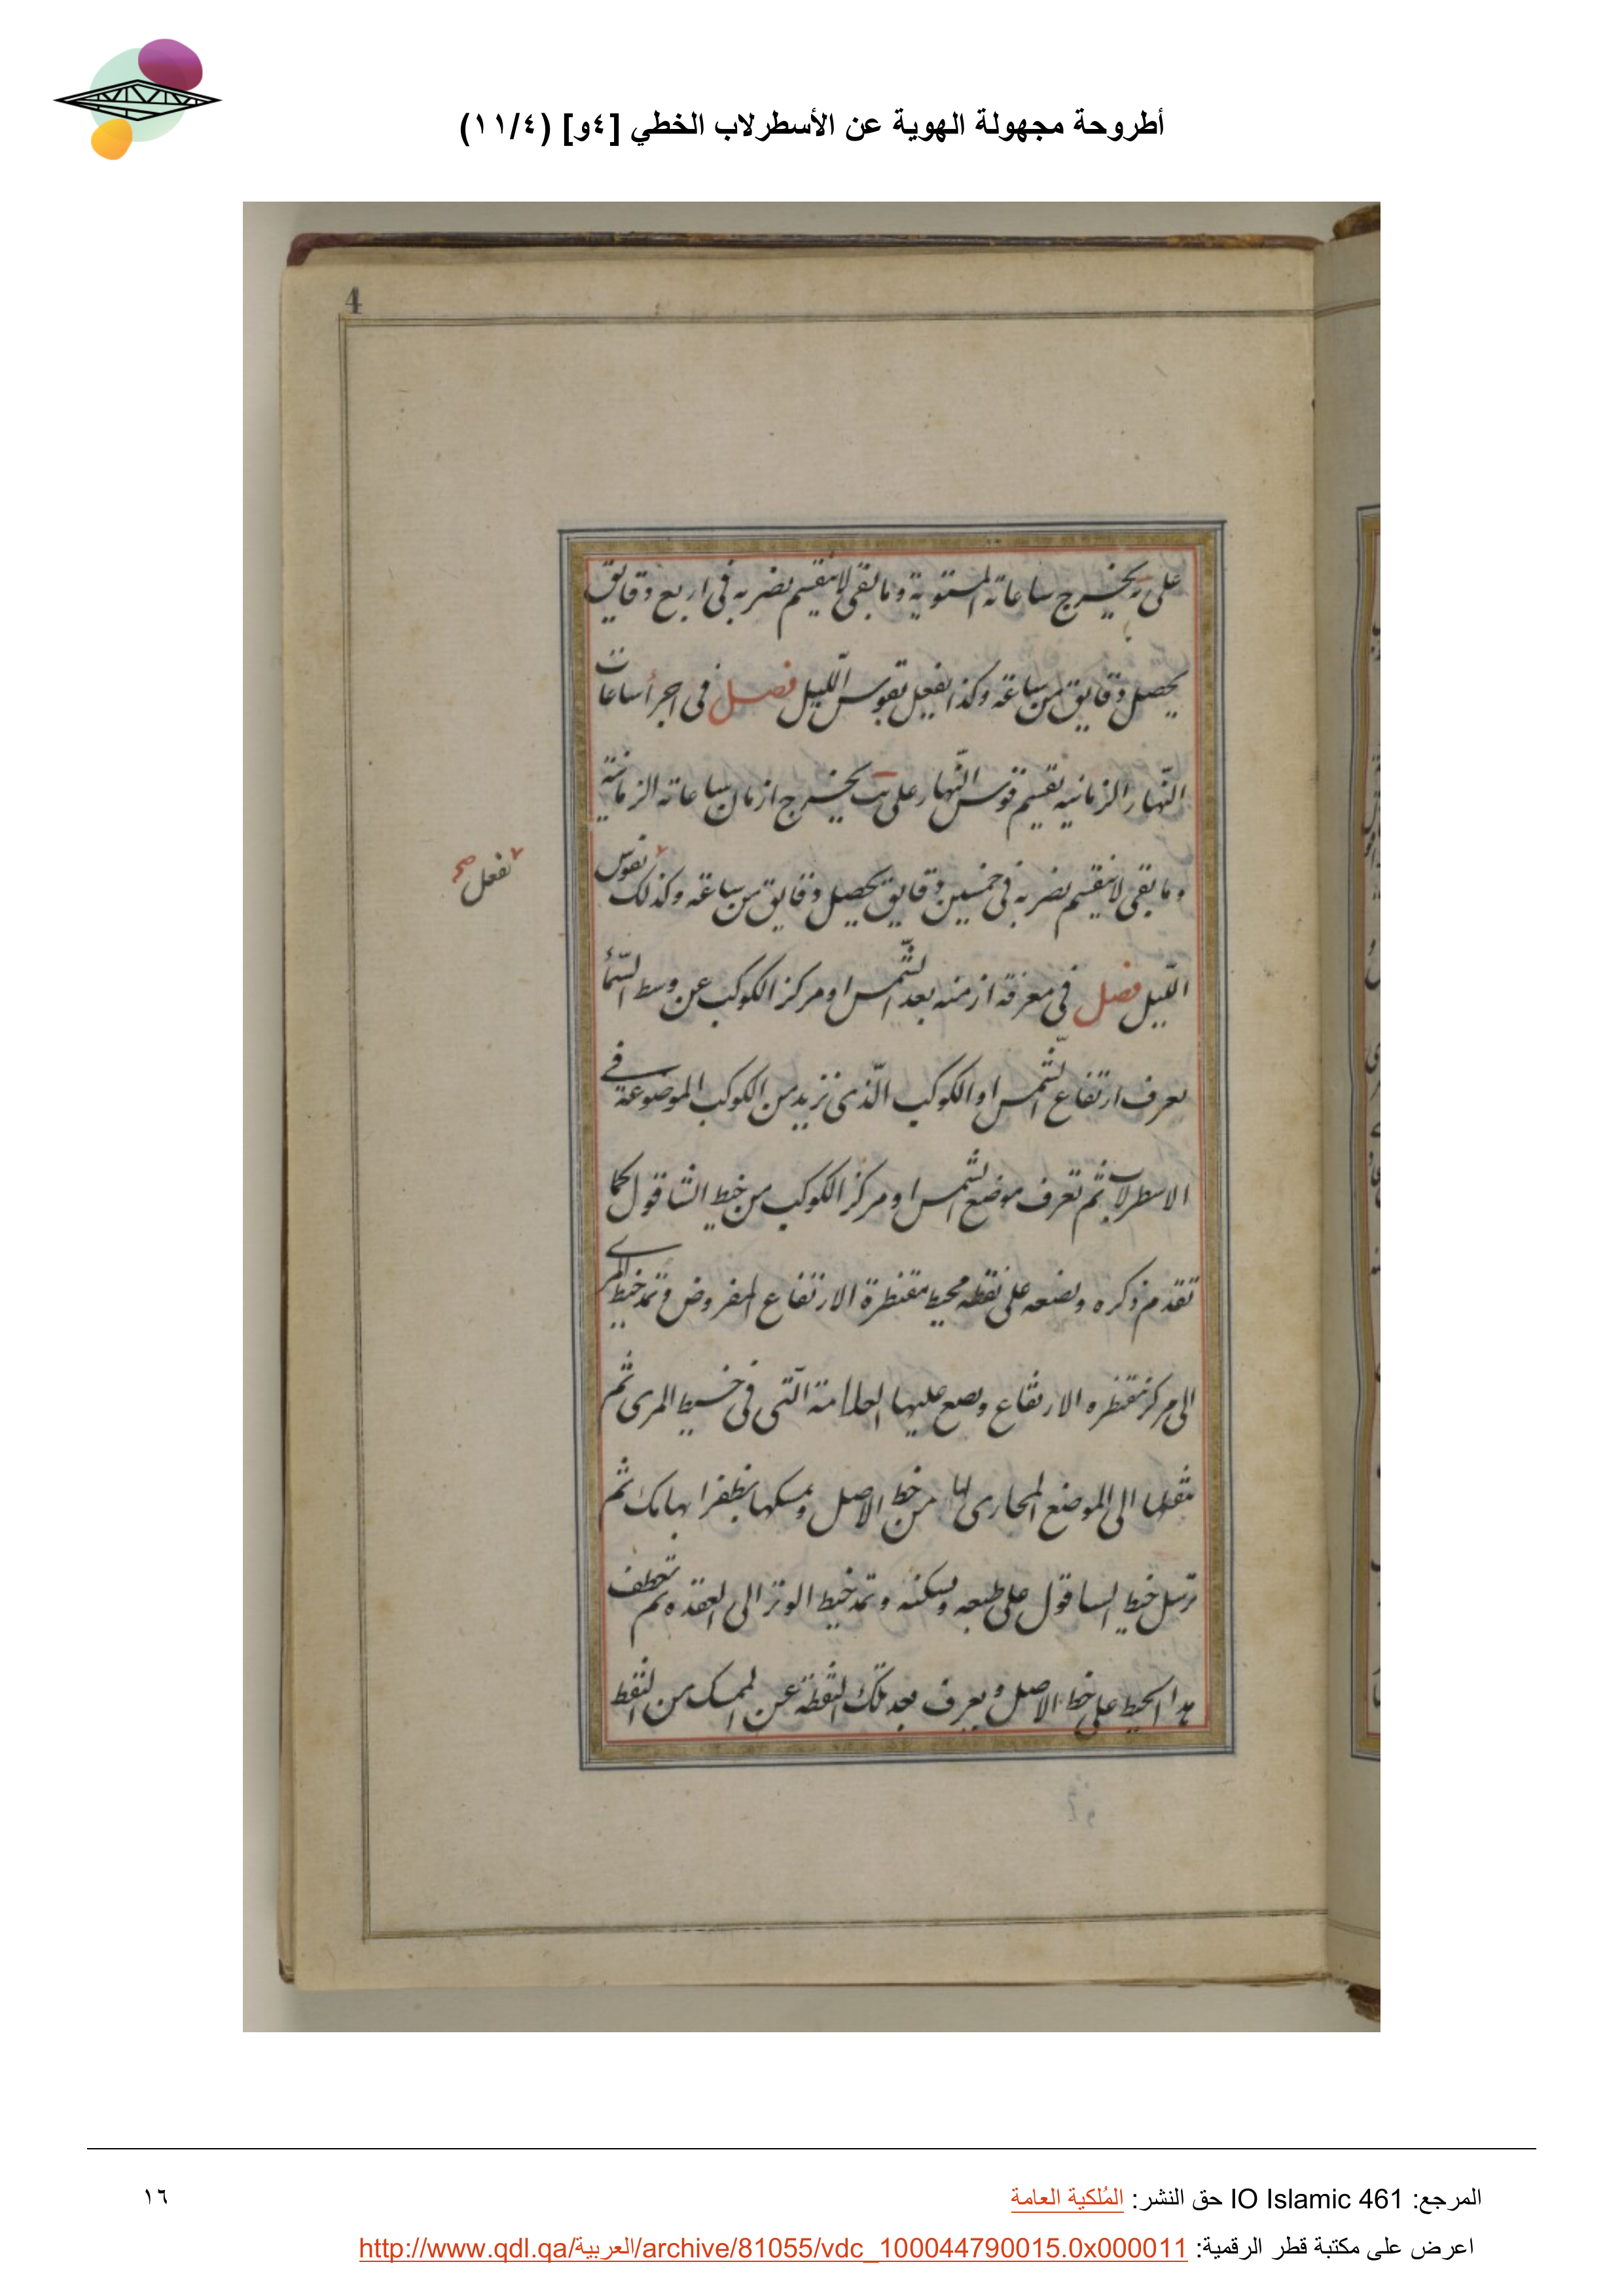 أطروحة مجهولة الهوية عن الأسطرلاب الخطي [٤و] (١١/٤)
4
على يه يخرج ساعاته المستوية وما بقى لا ينقسم نضربه فى اربع دقايق
يحصل دقايق من ساعته وكذا نفعل بقوس الليل فصل فى اجزأ ساعات
النهار الزمانيه نقسم قوس النهار على يب يخرج ازمان ساعاته الزمانية
وما بقى لا ينقسم نضربه فى خمسين دقايق يحصل دقايق من ساعته وكذلك بقوس
تفعل صح
الليل فصل فى معرفة ازمنه بعد الشمس او مركز الكوكب عن وسط السمأ
يعرف ارتفاع الشمس او الكوكب الذى نريد من الكوكب الموضوعة فى
الاسطرلاب ثم تعرف موضع الشمس او مركز الكوكب من خيط الشاقول كما
تقدم ذكره ونضعه على نقطه محيط مقنطرة الارتفاع المفروض وتمد خيط المرى
الى مركز مقنطره الارتفاع وضع عليها العلامة التى فى خيط المرى ثم
ننقلها الى الموضع المحارى لها من خط الاصل ونمسكها بظفر ابهامك ثم
ترسل خيط الساقول على طبعه وتسكنه وتمد خيط الوتر الى العقده ثم تعطف
هذا الخيط على خط الاصل وتعرف بعد تلك النقطة عن الممسك من النقط
المرجع: IO Islamic 461 حق النشر: المُلكية العامة
١٦
اعرض على مكتبة قطر الرقمية: http://www.qdl.qa/العربية/archive/81055/vdc_100044790015.0x000011